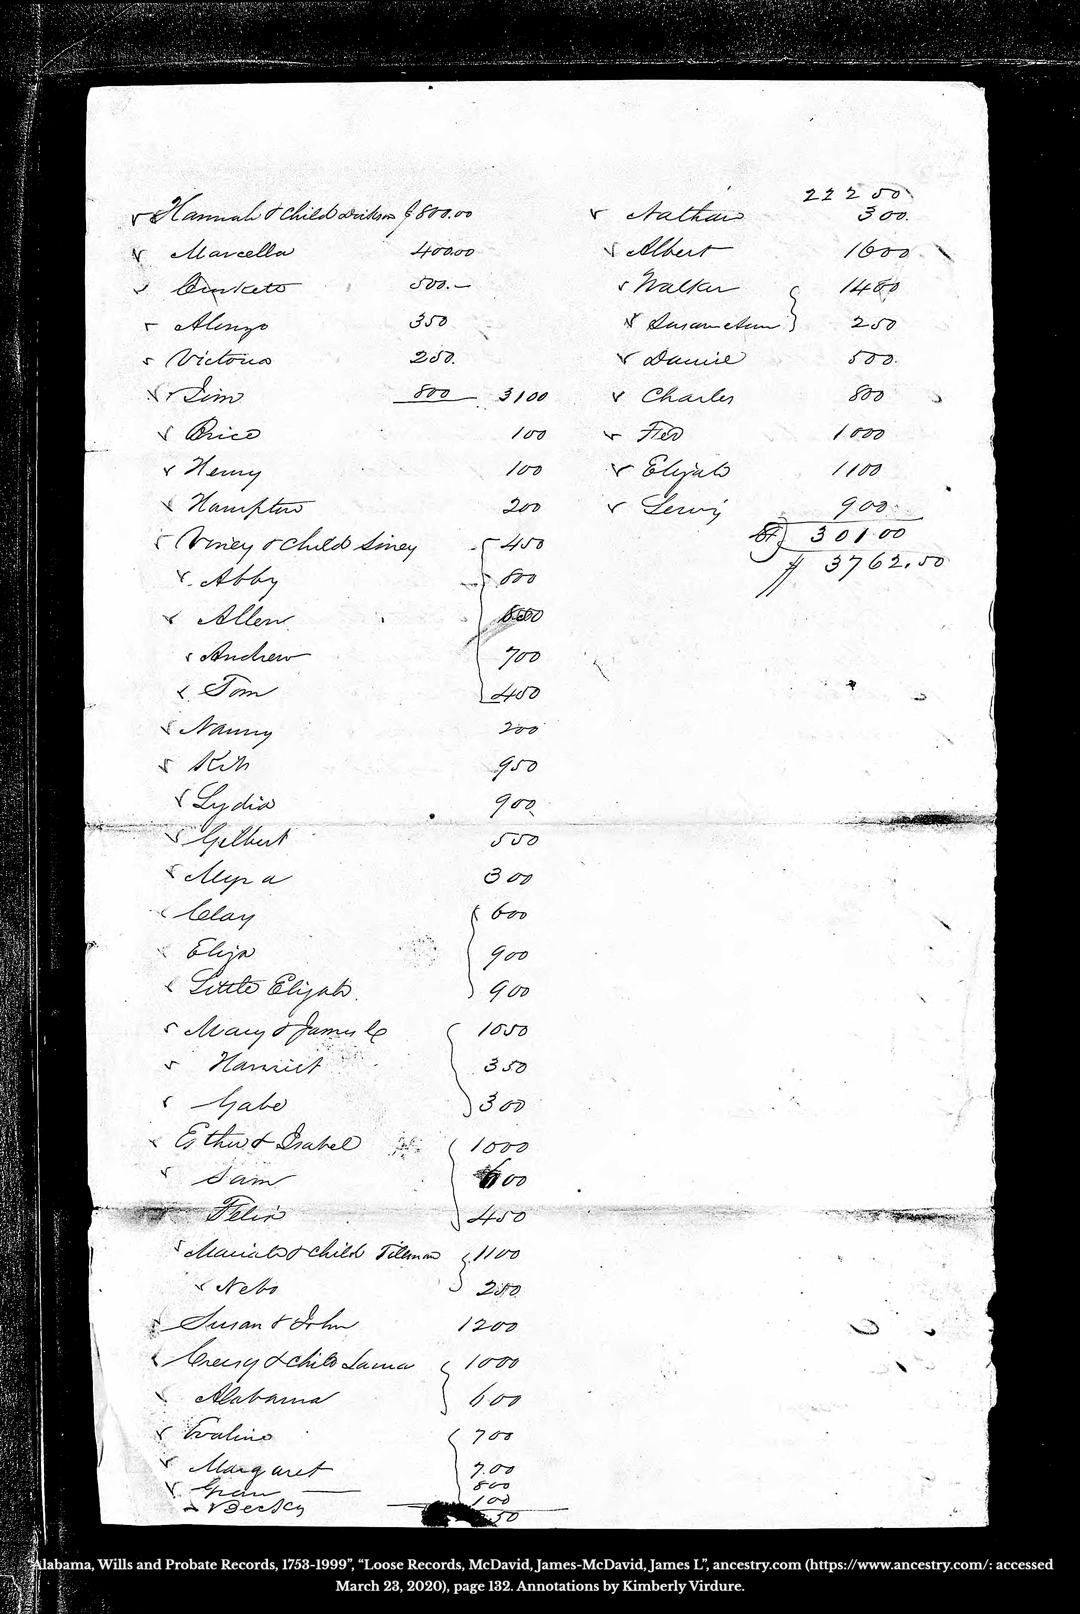 Hannah & Child Dickson $800.00
Marcella 400.00
500.—
Alonzo 350
Victoria 250.
Jim 800 3100
Brice 100
Henry 100
Hampton 200
Viney & Child Siney 450
Abby 800
Allen
Andrew 700
Tom 450
Nanny 200
950
Lydia 900
Gilbert 550
Myra 300
Clay 600
Eliza 900
Little Elijah 900
Mary & James C 1050
Harriet 350
Gabe 300
Esther & Isabel 1000
Sam 600
Felix 450
Mariah & Child Tillman 1100
Nebo 250
Susan & John 1200
Creesy & Child Laura 1000
Alabama 600
Evaline 700
Margaret 700
800
Becky 100
50
222 50
Nathan 300.
Albert 1600
Walker 1400
Susan Ann 250
500.
Charles 800
1000
Elijah 1100
Lewis 900
301.00
$ 3762.50
Alabama, Wills and Probate Records, 1753-1999”, “Loose Records, McDavid, James-McDavid, James L”, ancestry.com (https://www.ancestry.com/: accessed
March 23, 2020), page 132. Annotations by Kimberly Virdure.